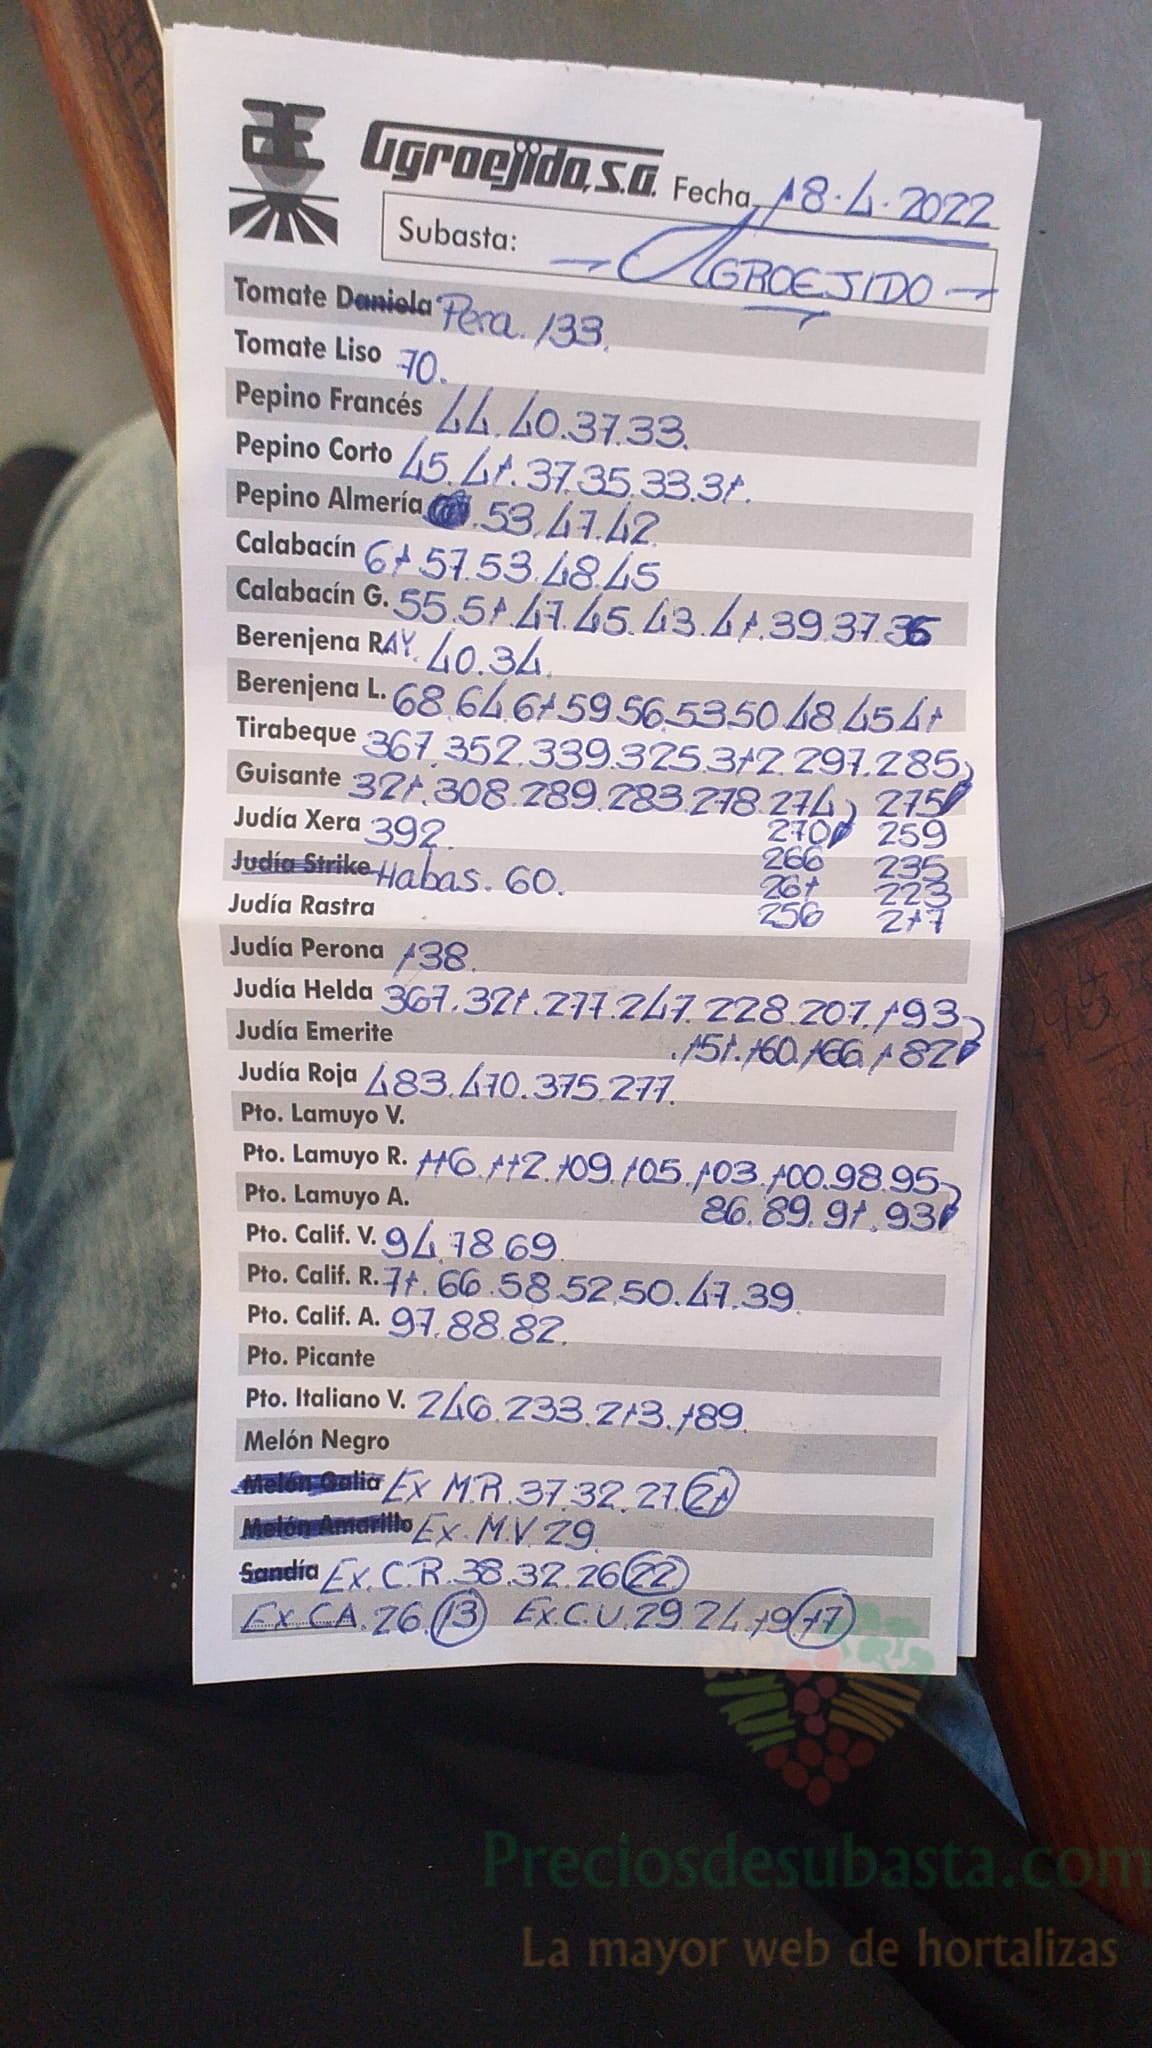 Agroejido, S.A. Fecha 18.4.2022
Subasta: AGROEJIDO
Tomate Daniela Pera. 133.
Tomate Liso 70.
Pepino Francés 44.40.37.33.
Pepino Corto 45.41.37.35.33.31.
Pepino Almería .53.47.42.
Calabacín 61.57.53.48.45
Calabacín G. 55.51.47.45.43.41.39.37.36
Berenjena RAY. 40.34.
Berenjena L. 68.64.61.59.56.53.50.48.45.41
Tirabeque 367.352.339.325.312.297.285
Guisante 321.308.289.283.278.274 275
Judía Xera 392. 270 259
Judía Strike Habas. 60. 266 235
261 223
Judía Rastra 256 217
Judía Perona 138.
Judía Helda 367.321.277.247.228.207.193
Judía Emerite .151.160.166.182
Judía Roja 483.470.375.277.
Pto. Lamuyo V.
Pto. Lamuyo R. 116.112.109.105.103.100.98.95
Pto. Lamuyo A. 86.89.91.93
Pto. Calif. V. 94.78.69
Pto. Calif. R. 71.66.58.52.50.47.39.
Pto. Calif. A. 97.88.82.
Pto. Picante
Pto. Italiano V. 246.233.213.189.
Melón Negro
Melón Galia Ex M.R. 37.32.27 21
Melón Amarillo Ex. M.V. 29.
Sandía Ex. C.R. 38.32.26 22
Ex CA. 26. 13 Ex. C.U. 29.24.19 17
Preciosdesubasta.com
La mayor web de hortalizas